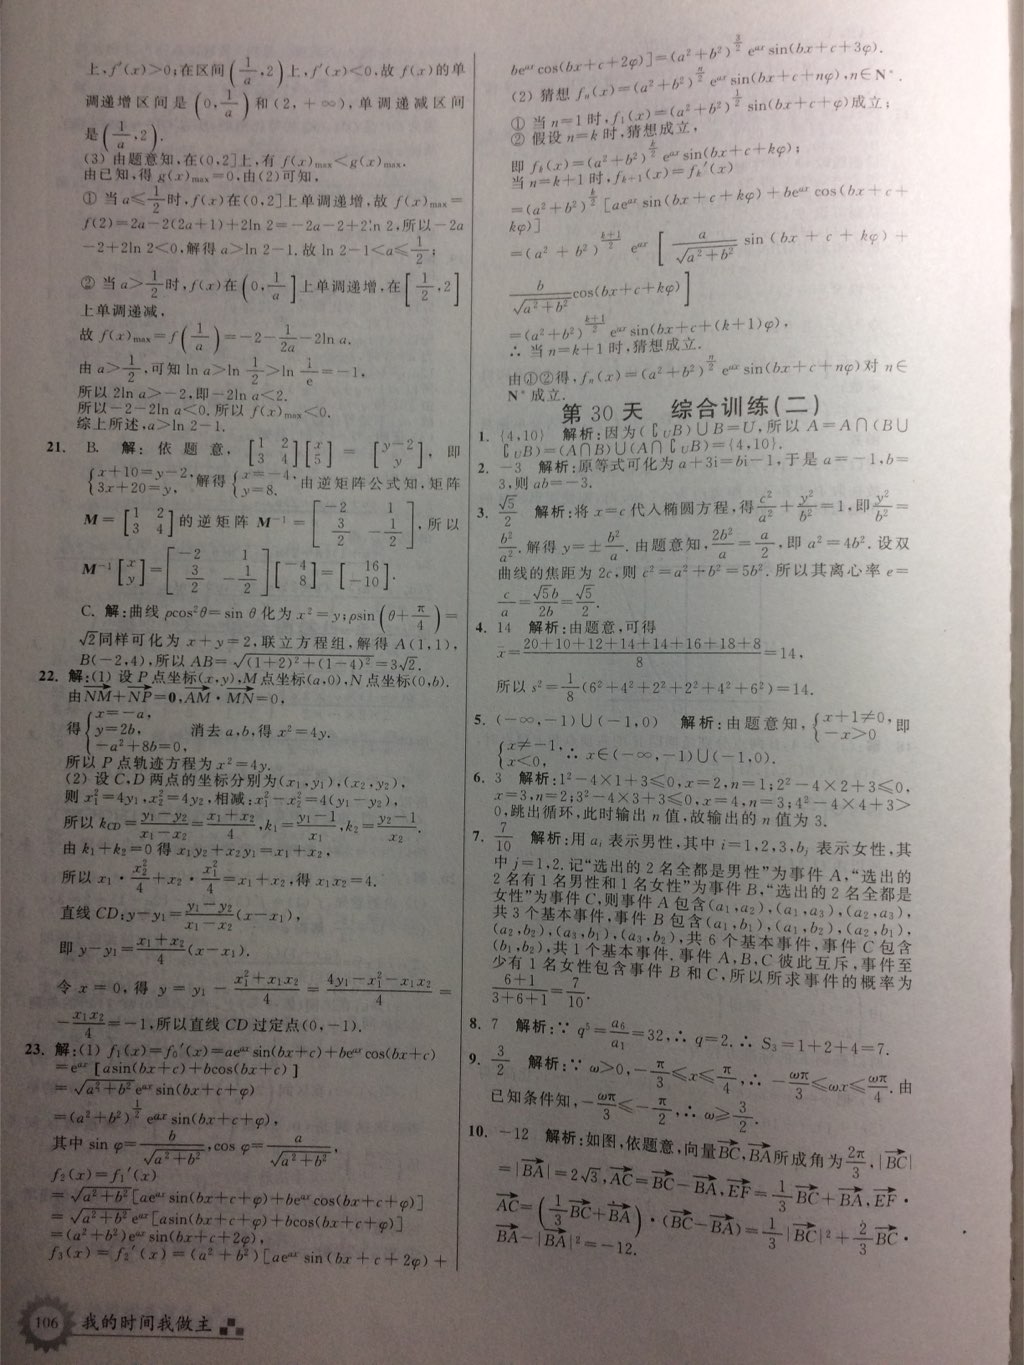 上,f′(x)>0;在区间(1/a,2)上,f′(x)<0,故 f(x)的单
调递增区间是(0,1/a)和(2,+∞),单调递减区间
是(1/a,2).
(3) 由题意知,在(0,2]上,有 f(x)max<g(x)max.
由已知,得 g(x)max=0,由(2)可知,
① 当 a≤1/2时,f(x)在(0,2]上单调递增,故 f(x)max=
f(2)=2a-2(2a+1)+2ln 2=-2a-2+2ln 2,所以-2a
-2+2ln 2<0,解得 a>ln 2-1.故 ln 2-1<a≤1/2;
② 当 a>1/2时,f(x)在(0,1/a]上单调递增,在[1/2,2]
上单调递减,
故 f(x)max=f(1/a)=-2-1/2a-2ln a,
由 a>1/2,可知 ln a>ln 1/2>ln 1/e=-1,
所以 2ln a>-2,即-2ln a<2.
所以-2-2ln a<0.所以 f(x)max<0.
综上所述,a>ln 2-1.
21. B. 解:依题意,[1 2; 3 4][x; 5]=[y-2; y],即
{x+10=y-2, 3x+20=y, 解得{x=-4, y=8. 由逆矩阵公式知,矩阵
M=[1 2; 3 4]的逆矩阵 M⁻¹=[-2 1; 3/2 -1/2],所以
M⁻¹[x; y]=[-2 1; 3/2 -1/2][-4; 8]=[16; -10].
C. 解:曲线 ρcos²θ=sin θ 化为 x²=y;ρsin(θ+π/4)=
√2同样可化为 x+y=2,联立方程组,解得 A(1,1),
B(-2,4),所以 AB=√((1+2)²+(1-4)²)=3√2.
22. 解:(1) 设 P 点坐标(x,y),M 点坐标(a,0),N 点坐标(0,b).
由NM+NP=0,AM·MN=0,
得{x=-a, y=2b, -a²+8b=0, 消去 a,b,得 x²=4y.
所以 P 点轨迹方程为 x²=4y.
(2) 设 C,D 两点的坐标分别为(x₁,y₁),(x₂,y₂),
则 x₁²=4y₁,x₂²=4y₂,相减:x₁²-x₂²=4(y₁-y₂),
所以 kCD=(y₁-y₂)/(x₁-x₂)=(x₁+x₂)/4,k₁=(y₁-1)/x₁,k₂=(y₂-1)/x₂.
由 k₁+k₂=0 得 x₁y₂+x₂y₁=x₁+x₂,
所以 x₁·x₂²/4+x₂·x₁²/4=x₁+x₂,得 x₁x₂=4.
直线 CD:y-y₁=(y₁-y₂)/(x₁-x₂)(x-x₁),
即 y-y₁=(x₁+x₂)/4(x-x₁).
令 x=0,得 y=y₁-(x₁²+x₁x₂)/4=(4y₁-x₁²-x₁x₂)/4=
-x₁x₂/4=-1,所以直线 CD 过定点(0,-1).
23. 解:(1) f₁(x)=f₀′(x)=aeᵃˣsin(bx+c)+beᵃˣcos(bx+c)
=eᵃˣ[asin(bx+c)+bcos(bx+c)]
=√(a²+b²)eᵃˣsin(bx+c+φ)
=(a²+b²)^(1/2)eᵃˣsin(bx+c+φ),
其中 sin φ=b/√(a²+b²),cos φ=a/√(a²+b²),
f₂(x)=f₁′(x)
=√(a²+b²)[aeᵃˣsin(bx+c+φ)+beᵃˣcos(bx+c+φ)]
=√(a²+b²)eᵃˣ[asin(bx+c+φ)+bcos(bx+c+φ)]
=(a²+b²)eᵃˣsin(bx+c+2φ),
f₃(x)=f₂′(x)=(a²+b²)[aeᵃˣsin(bx+c+2φ)+
beᵃˣcos(bx+c+2φ)]=(a²+b²)^(3/2)eᵃˣsin(bx+c+3φ).
(2) 猜想 fₙ(x)=(a²+b²)^(n/2)eᵃˣsin(bx+c+nφ),n∈N*.
① 当 n=1 时,f₁(x)=(a²+b²)^(1/2)sin(bx+c+φ)成立;
② 假设 n=k 时,猜想成立,
即 fₖ(x)=(a²+b²)^(k/2)eᵃˣsin(bx+c+kφ);
当 n=k+1 时,fₖ₊₁(x)=fₖ′(x)
=(a²+b²)^(k/2)[aeᵃˣsin(bx+c+kφ)+beᵃˣcos(bx+c+
kφ)]
=(a²+b²)^((k+1)/2)eᵃˣ[a/√(a²+b²) sin(bx+c+kφ)+
b/√(a²+b²) cos(bx+c+kφ)]
=(a²+b²)^((k+1)/2)eᵃˣsin(bx+c+(k+1)φ),
∴ 当 n=k+1 时,猜想成立.
由①②得,fₙ(x)=(a²+b²)^(n/2)eᵃˣsin(bx+c+nφ)对 n∈
N*成立.
第 30 天 综合训练(二)
1. {4,10} 解析:因为(∁UB)∪B=U,所以 A=A∩(B∪
∁UB)=(A∩B)∪(A∩∁UB)={4,10}.
2. -3 解析:原等式可化为 a+3i=bi-1,于是 a=-1,b=
3,则 ab=-3.
3. √5/2 解析:将 x=c 代入椭圆方程,得c²/a²+y²/b²=1,即y²/b²=
b²/a².解得 y=±b²/a.由题意知,2b²/a=a/2,即 a²=4b².设双
曲线的焦距为 2c,则 c²=a²+b²=5b².所以其离心率 e=
c/a=√5b/2b=√5/2.
4. 14 解析:由题意,可得
x̄=(20+10+12+14+14+16+18+8)/8=14,
所以 s²=1/8(6²+4²+2²+2²+4²+6²)=14.
5. (-∞,-1)∪(-1,0) 解析:由题意知,{x+1≠0, -x>0 即
{x≠-1, x<0, ∴ x∈(-∞,-1)∪(-1,0).
6. 3 解析:1²-4×1+3≤0,x=2,n=1;2²-4×2+3≤0,
x=3,n=2;3²-4×3+3≤0,x=4,n=3;4²-4×4+3>
0,跳出循环,此时输出 n 值,故输出的 n 值为 3.
7. 7/10 解析:用 aᵢ 表示男性,其中 i=1,2,3,bⱼ 表示女性,其
中 j=1,2.记“选出的 2 名全都是男性”为事件 A,“选出的
2 名有 1 名男性和 1 名女性”为事件 B,“选出的 2 名全都是
女性”为事件 C,则事件 A 包含(a₁,a₂),(a₁,a₃),(a₂,a₃),
共 3 个基本事件,事件 B 包含(a₁,b₁),(a₁,b₂),(a₂,b₁),
(a₂,b₂),(a₃,b₁),(a₃,b₂),共 6 个基本事件,事件 C 包含
(b₁,b₂),共 1 个基本事件.事件 A,B,C 彼此互斥,事件至
少有 1 名女性包含事件 B 和 C,所以所求事件的概率为
(6+1)/(3+6+1)=7/10.
8. 7 解析:∵ q⁵=a₆/a₁=32,∴ q=2.∴ S₃=1+2+4=7.
9. 3/2 解析:∵ ω>0,-π/3≤x≤π/4,∴ -ωπ/3≤ωx≤ωπ/4.由
已知条件知,-ωπ/3≤-π/2,∴ ω≥3/2.
10. -12 解析:如图,依题意,向量BC,BA所成角为2π/3,|BC|
=|BA|=2√3,AC=BC-BA,EF=1/3BC+BA,EF·
AC=(1/3BC+BA)·(BC-BA)=1/3|BC|²+2/3BC·
BA-|BA|²=-12.
106 我的时间我做主